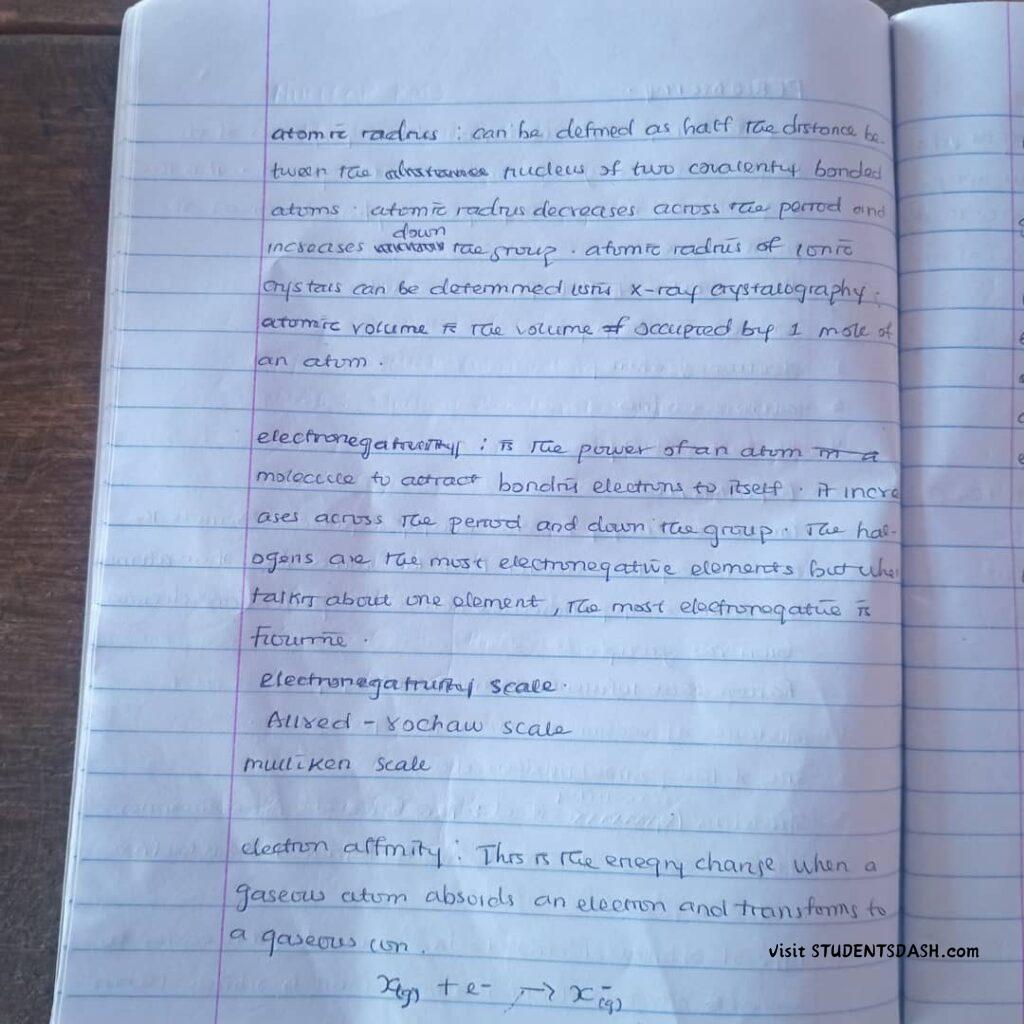 atomic radius : can be defined as half the distance be
tween the nucleus of two covalenty bonded
atoms. atomic radius decreases across the period and
down
increases the group. atomic radius of ionic
crystals can be determined using x-ray crystalography.
atomic volume is the volume of occupied by 1 mole of
an atom.
electronegativity : is the power of an atom in a
molecule to attract bonding electrons to itself. it incre
ases across the period and down the group. The hal-
ogens are the most electronegative elements but when
talking about one element, the most electronegative is
flourine.
electronegativity scale.
Allred - rochaw scale
mulliken scale
electron affinity : This is the eneqry change when a
gaseous atom absoids an electron and transforms to
a gaseous ion.
x(g) + e- → x⁻(g)
visit STUDENTSDASH.com